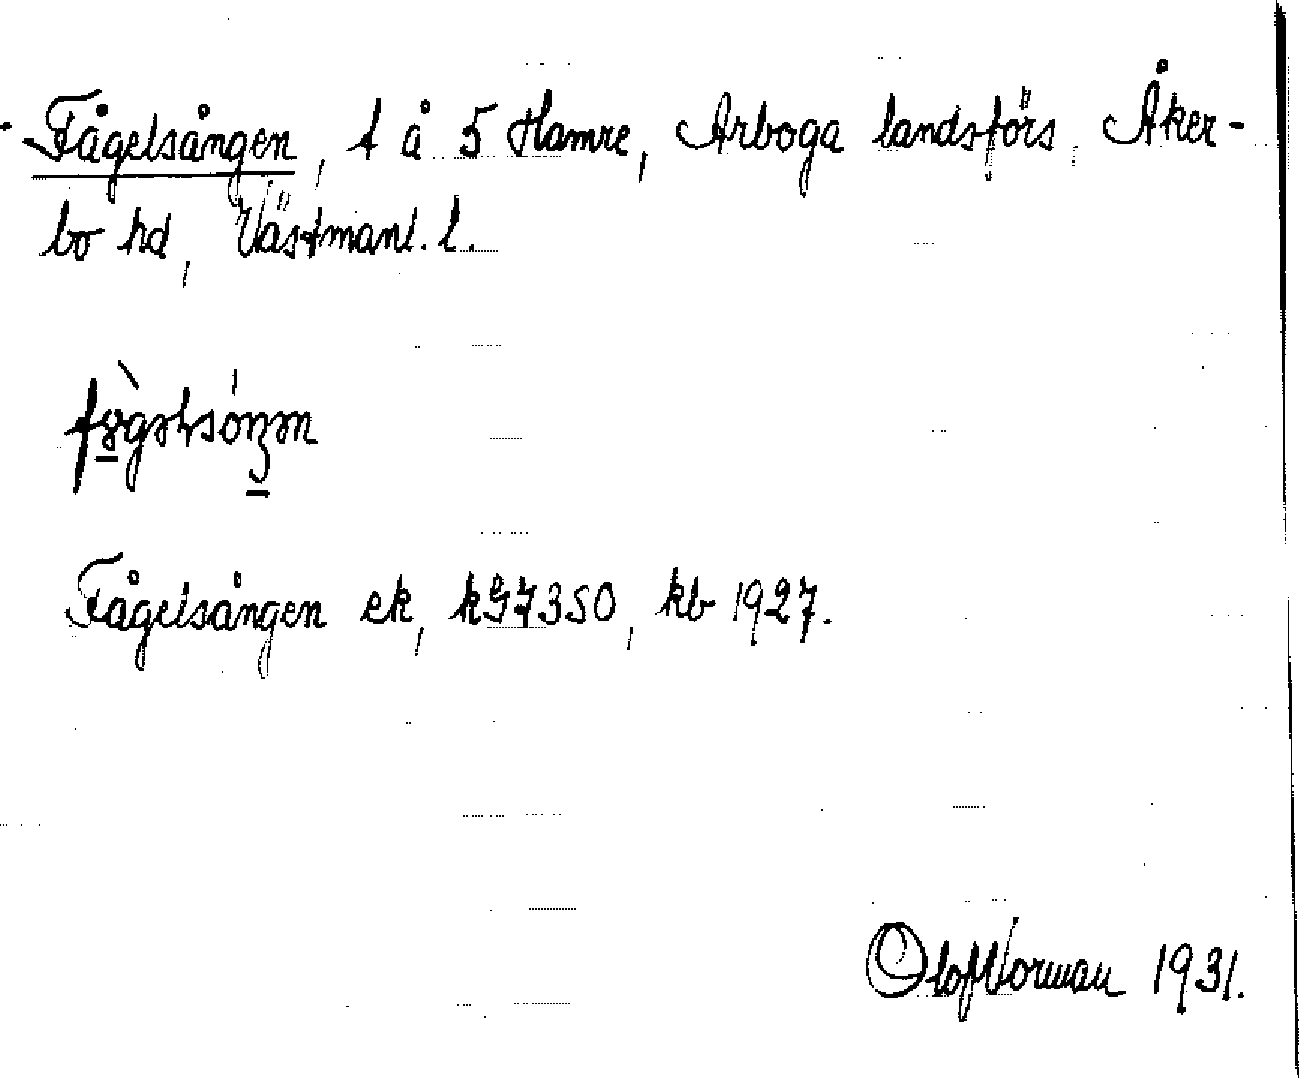 Fågelsången, t å 5 Hamre, Arboga landsförs, Åker-
bo hd, Västmanl. l.
Fågelsången ek, kG7350, kb 1927.
Olof Norman 1931.